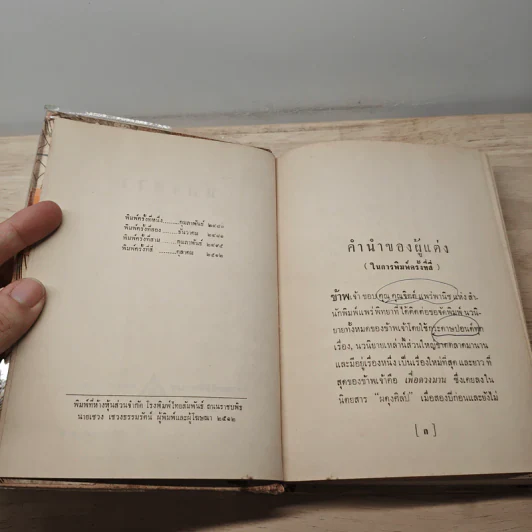 พิมพ์ครั้งที่หนึ่ง ..... กุมภาพันธ์
พิมพ์ครั้งที่สอง ...... ธันวาคม
พิมพ์ครั้งที่สาม ..... กุมภาพันธ์
พิมพ์ครั้งที่สี่ ...... ตุลาคม ๒๕๑๒
พิมพ์ที่ห้างหุ้นส่วนจำกัด โรงพิมพ์ไทยสัมพันธ์ ถนนราชบพิธ
นายเชวง เชวงธรรมรักน์ ผู้พิมพ์และผู้โฆษณา ๒๕๑๒
คำนำของผู้แต่ง
( ในการพิมพ์ครั้งที่สี่ )
ข้าพะเจ้า ขอบ คุณ คุณจิตต์ แพร่พานิช แห่ง สำ
นักพิมพ์แพร่พิทยาที่ได้คิดต่อขอจัดพิมพ์ นวนิ-
ยายทั้งหมดของข้าพเจ้าโดยใช้กระดาษปอนด์ทุก
เรื่อง, นวนิยายเหล่านี้ส่วนใหญ่ขาดตลาดมานาน
และมีอยู่เรื่องหนึ่ง เป็นเรื่องใหม่ที่สุด และยาว ที่
สุดของข้าพเจ้าคือ เพื่อดวงมาน ซึ่งเคยลงใน
นิตยสาร "ผดุงศิลป์" เมื่อสองปีก่อนและยังไม่
[ ๓ ]